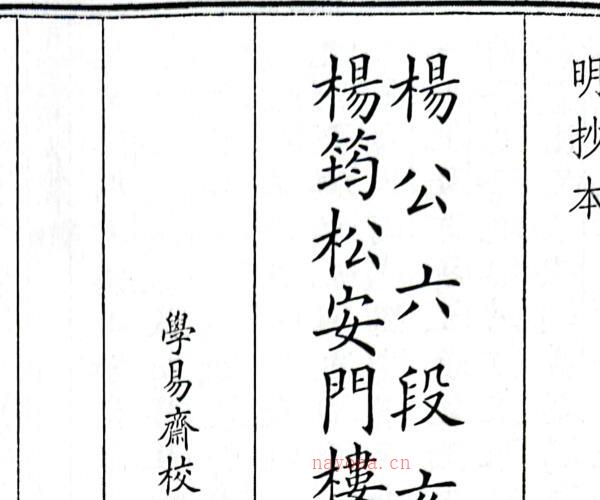 明抄本
楊公六段
楊筠松安門樓
學易齋校